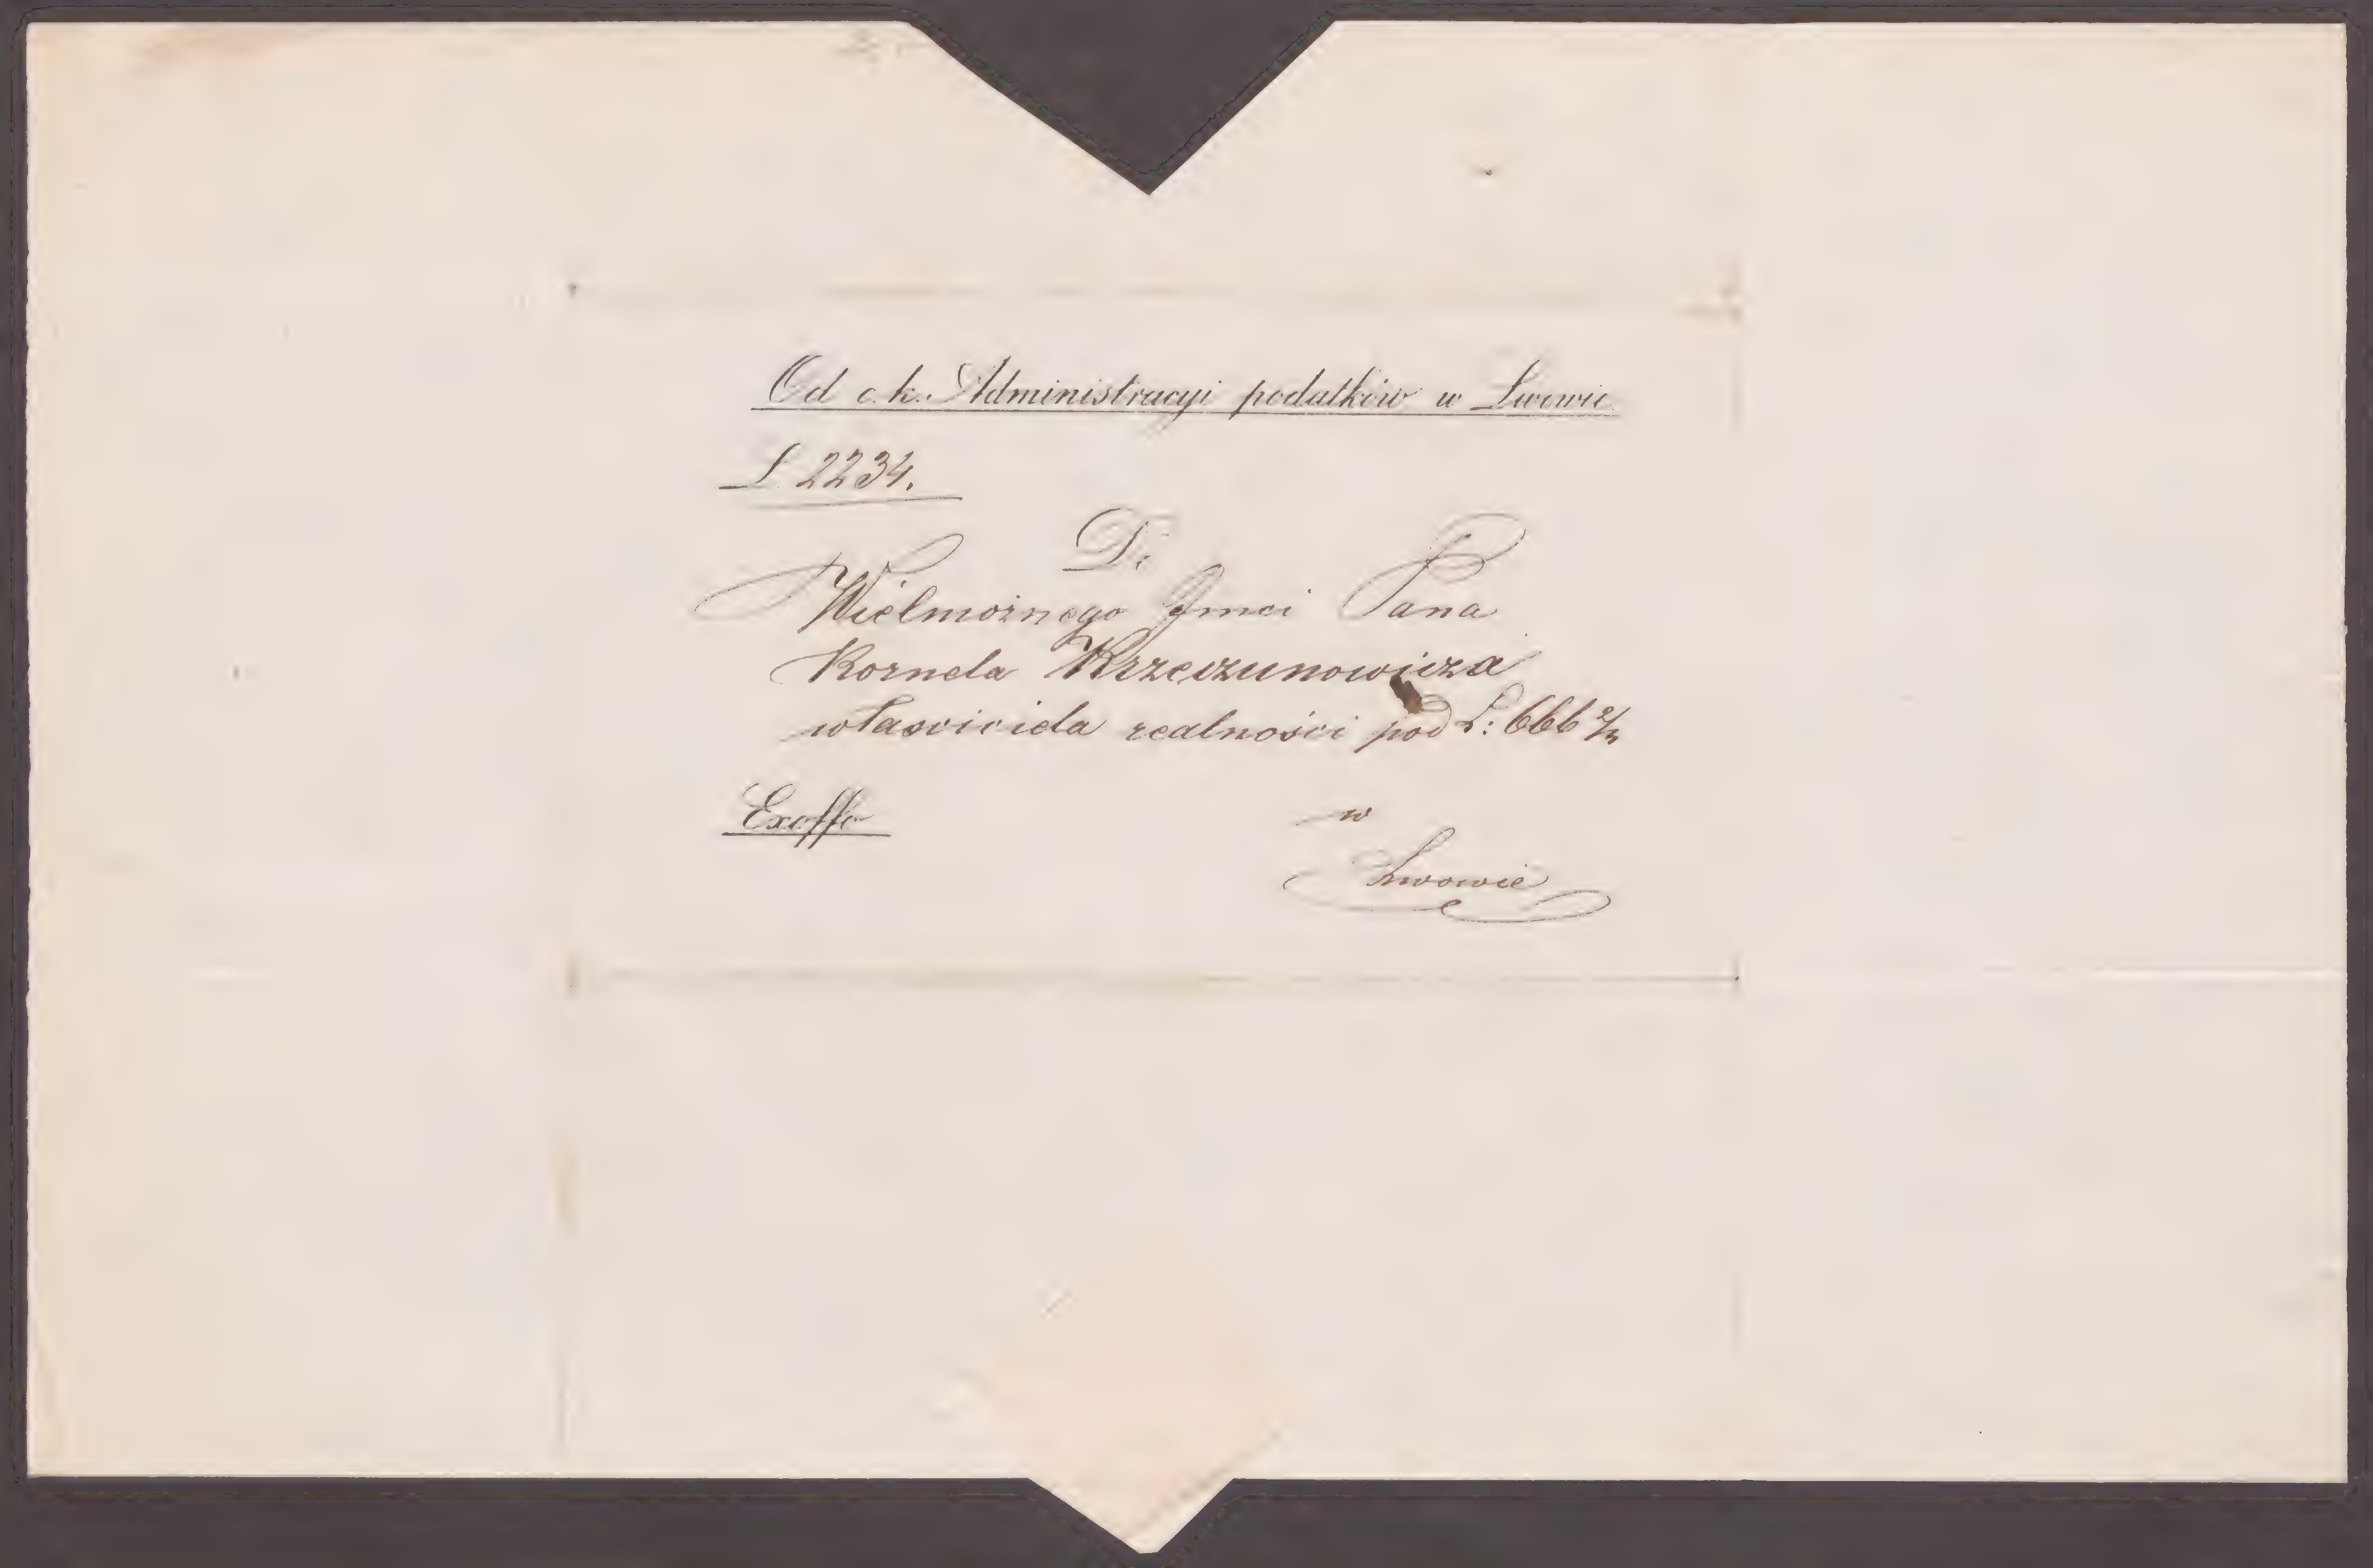 Od c.k. Administracyi podatków w Lwowie
L 2234.
Do
Wielmożnego Jmci Pana
Kornela Krzeczunowicza
właściciela realności pod L: 666 2/4
Exoffo
w
Lwowie